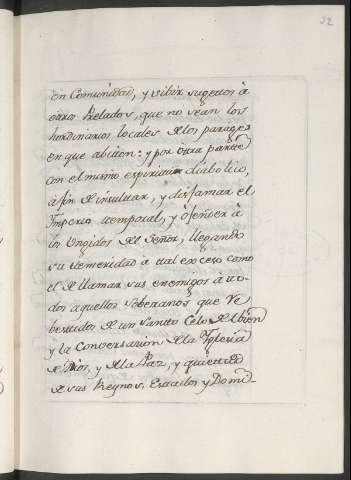 52
en Comunidad, y vibir sugettos â
otros Prelados, que no sean los
hordinarios locales de los parages
en que abiten: y por otra partte
con el mismo espirittu diabolico,
â fin de insultar, y disfamar el
Imperio ttemporal, y ôfender â
los Ungidos del Señor, llegando
su ttemeridad â tal exceso como
el de llamar sus enemigos â to-
dos aquellos Soberanos que Va
bestidos de un Santto Celo del bien
y la Conversasion de la Yglesia
de Dios, y de la Paz, y quiettud
de sus Reynos, Estados y Domi-